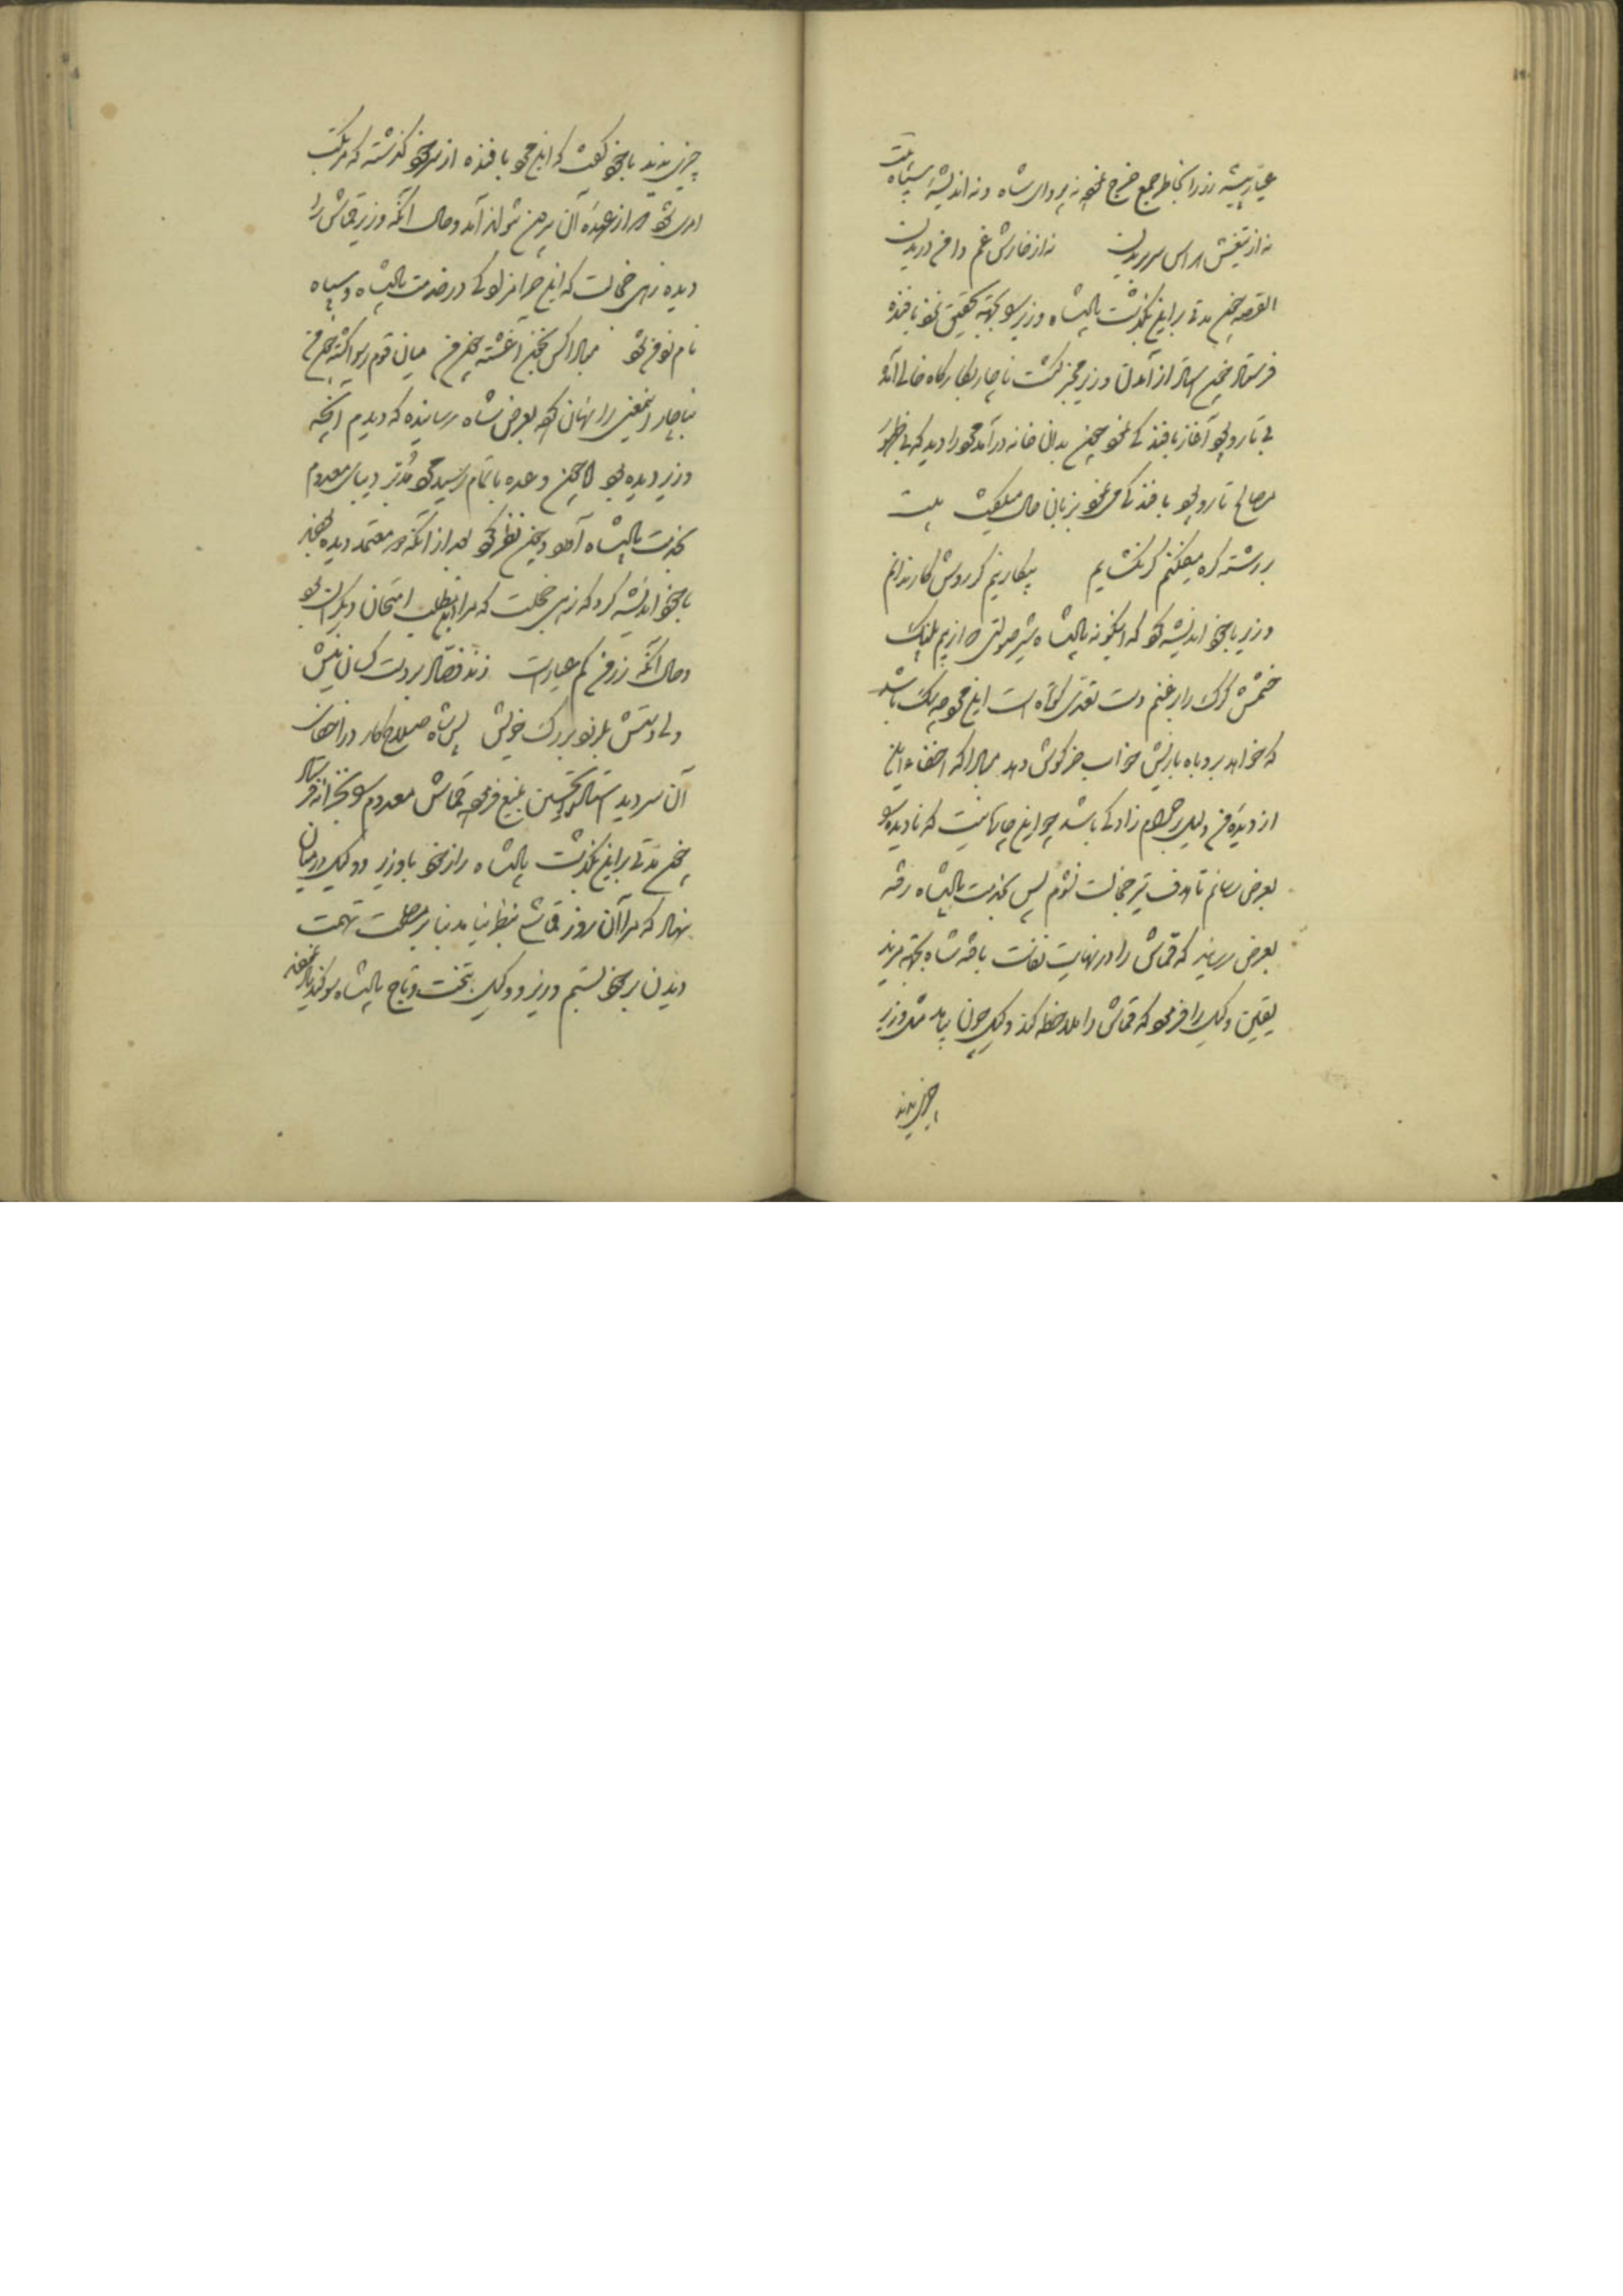 عیار پیشه زر را بخاطر جمع خرج نموده نه پروای شاه و نه اندیشهٔ سپاه بیت
نه از تیغش هراس سر بریدن نه از خارش غم دامن دریدن
القصه چون مدتی برین بگذشت پادشاه وزیر را بجهة تحقیق نمودن بافنده
فرستاد چون استاد از آمدن وزیر مخبر گشت ناچار بکارگاه خالی آمده
بی تار و پود آغاز بافندگی نمود چون بدان خانه درآمد مرد را دید که بی ظهور
مصالح تار و پود بافندگی می نمود بزبان حال میگفت بیت
بر رشته گره میفکنم گر نگشایم بیکار نیم گر روش کار ندانم
وزیر با خود اندیشه کرد که اینگونه پادشاه شیر صولتی که از بیم پلنگ
خشمش گرگ را بر غنم دست تعدی کوتاه است این مرد چه سگ باشد
که خواهد بروباه بازیش خواب خرگوش دهد مبادا که اخفاء این
از دیدهٔ من دلیل حرام زادگی باشد چو این جایها نیست که نادیده را
بعرض رسانم تا هدف تیر خجالت نشوم پس بخدمت پادشاه رفته
بعرض رسانید که قماش را در نهایت نفاست بافته شاه بجهة مزید
یقین وکیل را فرمود که قماش را ملاحظه کند وکیل چون بیامد مثل وزیر
چیزی ندید
چیزی ندید با خود گفت که این مرد بافنده از سر خود گذشته که مرتکب
امری شود که از عهدهٔ آن بیرون نتواند آمد و حال آنکه وزیر قماش را
دیده زهی خجالت که این حرامزادگی در خدمت پادشاه و سپاه
نام من شود مبادا کس بخون آغشته چون من میان قوم رسوا گشته چون من
ناچار این معنی را نهان کرده بعرض شاه رسانیده که دیدم آنچه
وزیر دیده بود چون وعده باتمام رسید مرد مدبر دیبای معدوم
بخدمت پادشاه آورد و چون نظر کرد بعد از آنکه دو معتمد دیده بودند
با خود اندیشه کرد که زهی خجلت که مرا ازین مطلب امتحان دیگران بود
و حال آنکه زر من کم عیارست زند نقاد بر دست کسان نیش
ولی دستش بلرزد بر رگ خویش پس شاه صلاح کار در اخفای
آن سر دید استاد را تحسین بلیغ فرمود قماش معدوم را بخزانه فرستاد
چون مدتی برین بگذشت پادشاه راز خود با وزیر و وکیل در میان
نهاد که مرا آن روز قماش بنظر نیامد بنا بر مصلحت تهمت
دیدن بر خود بستم وزیر و وکیل بتخت و تاج پادشاه سوگند یاد نموده